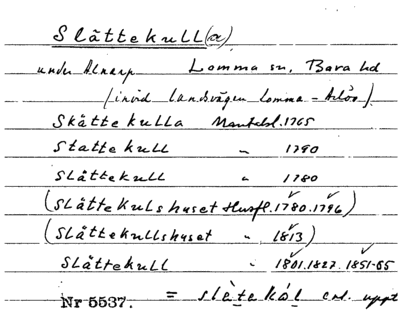 Slättekull(a)
under Alnarp Lomma sn, Bara hd
(invid landsvägen Lomma - Arlöv)
Skåttekulla Mantalsl. 1765
Stattekull " 1790
Slåttekull " 1780
(Slåttekulshuset Husfl. 1780. 1796)
(Slåttekullshuset " 1813)
Slåttekull " 1801. 1827. 1851-65
Nr 5537. = slåtekål enl. uppt